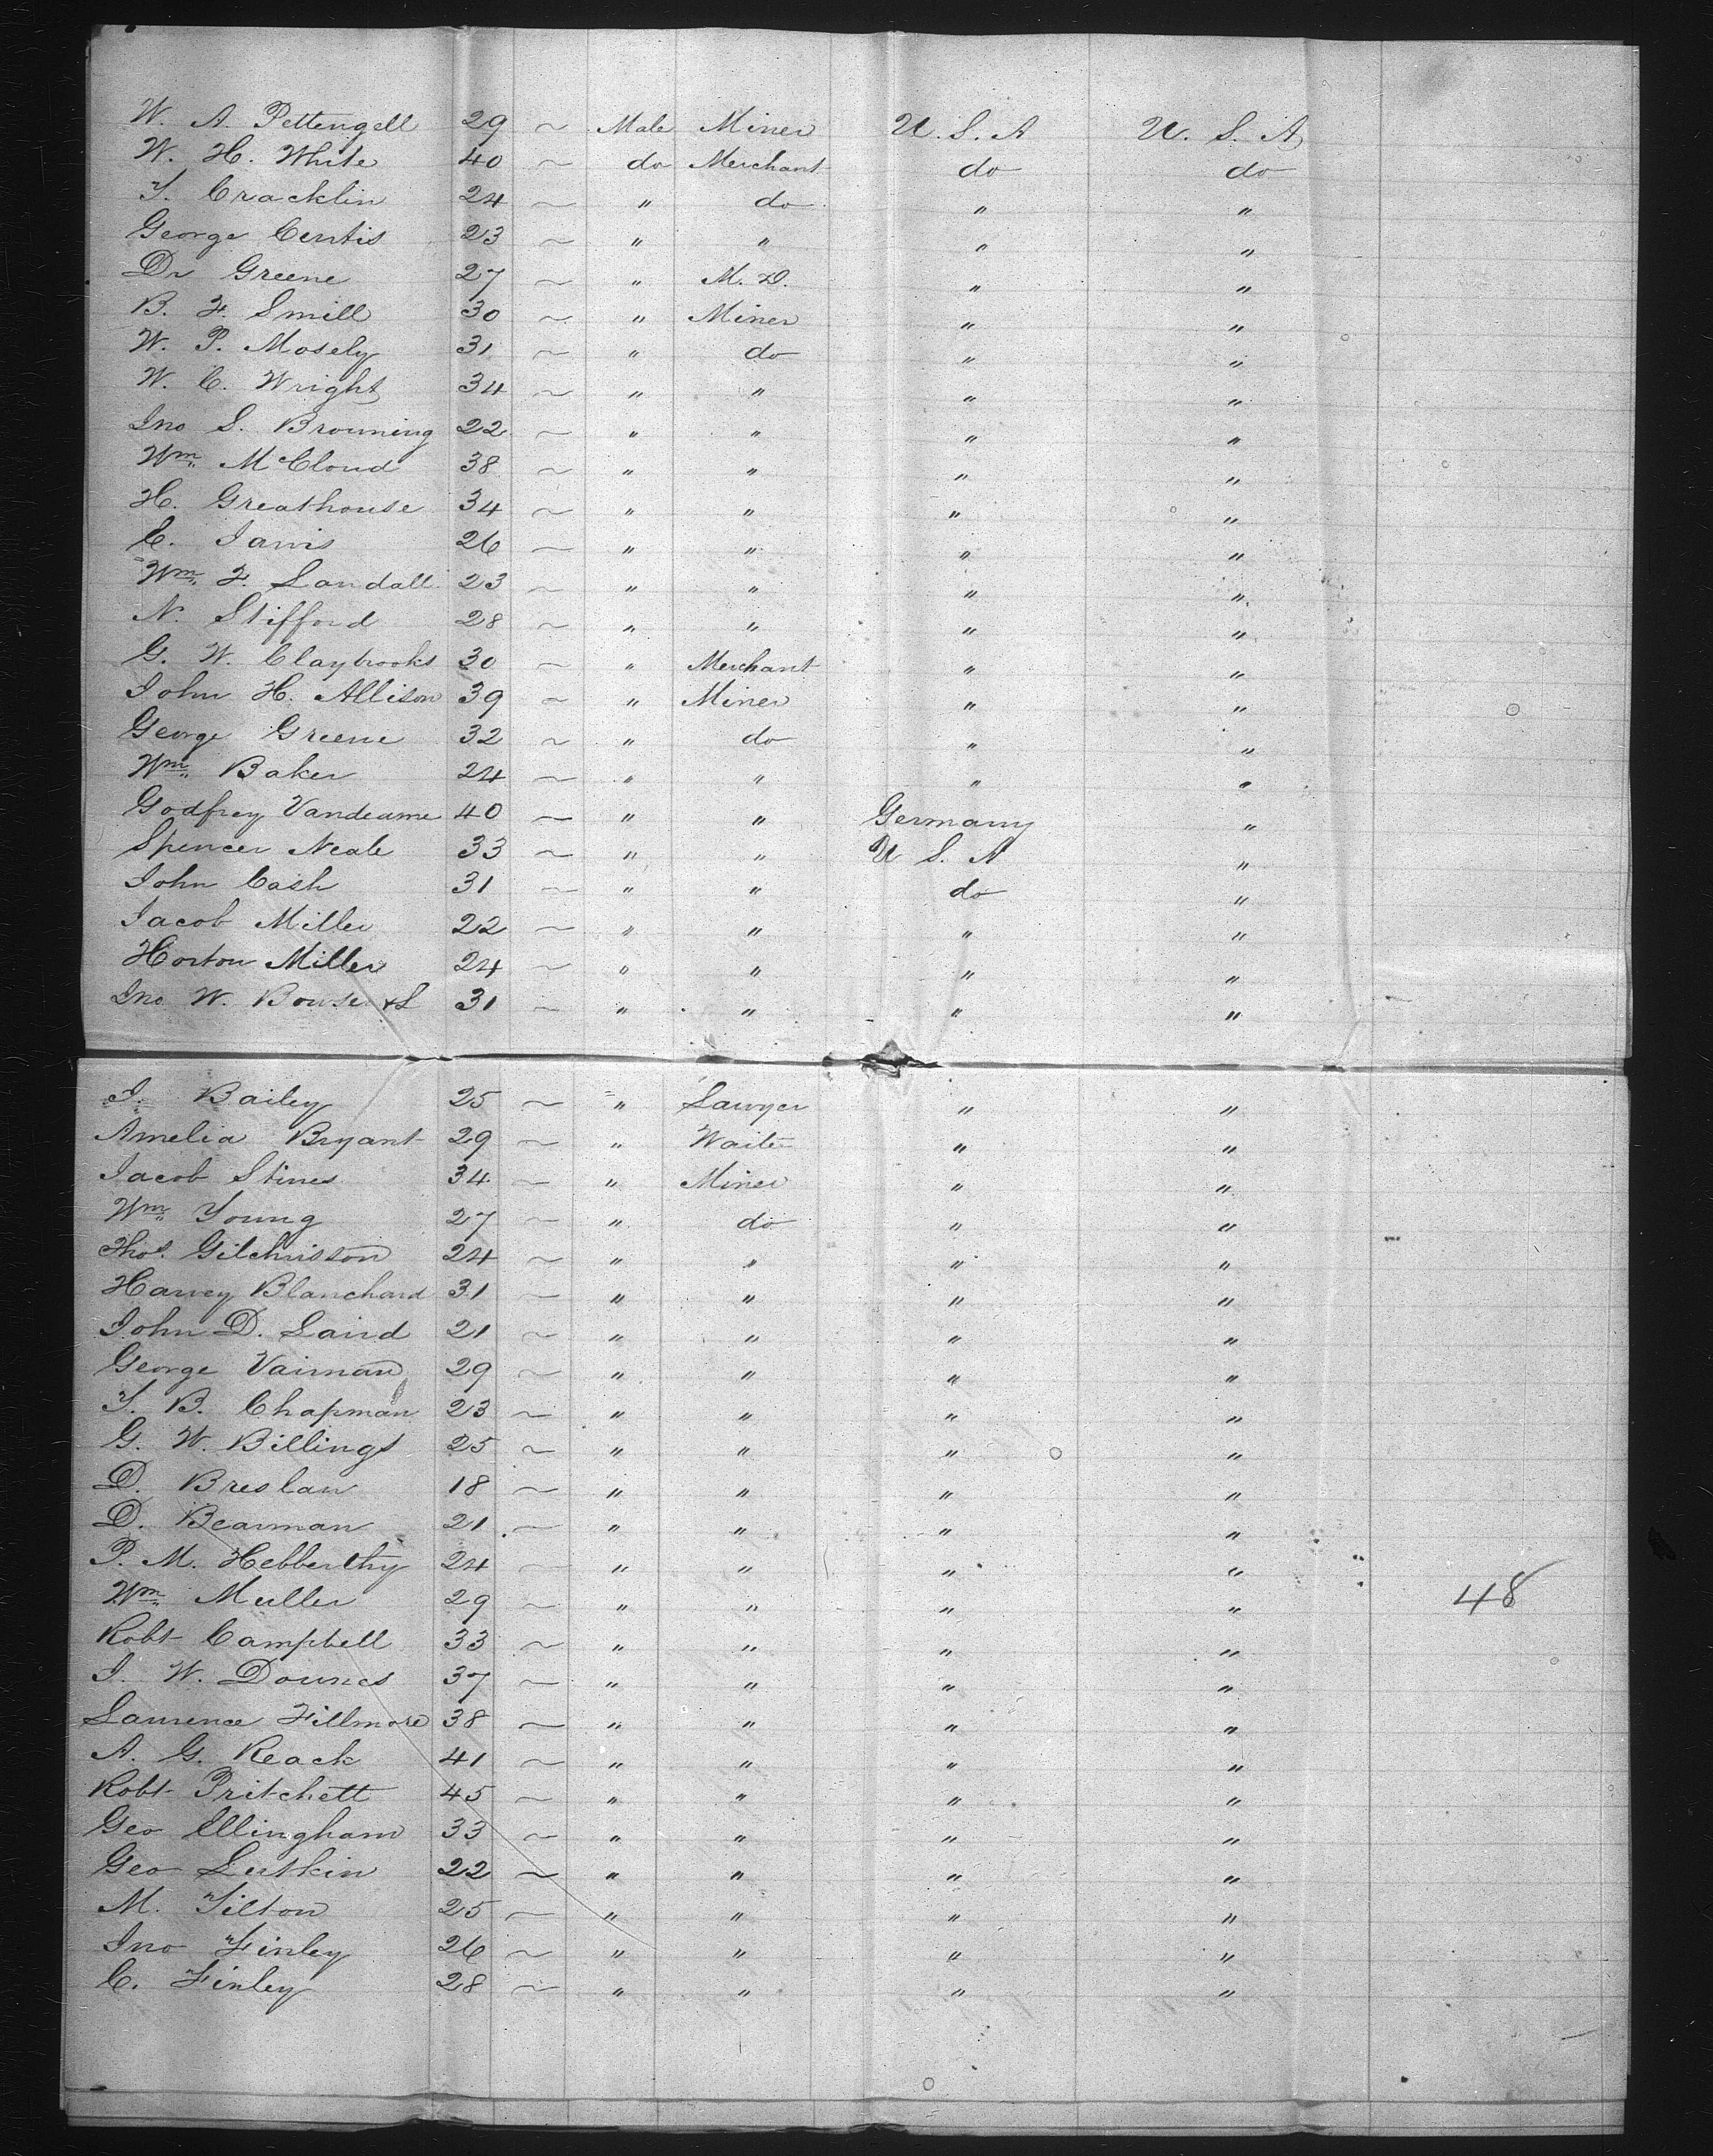 W. A. Pettengell 29 ~ Male Miner U. S. A U. S. A
W. H. White 40 ~ do Merchant do do
T. Cracklin 24 ~ " do " "
George Curtis 23 ~ " " " "
Dr Greene 27 ~ " M. D. " "
B. F. Smill 30 ~ " Miner " "
W. P. Mosely 31 ~ " do " "
W. C. Wright 34 ~ " " " "
Jno S. Browning 22 ~ " " " "
Wm McCloud 38 ~ " " " "
H. Greathouse 34 ~ " " " "
C. Jarvis 26 ~ " " " "
Wm F. Landall 23 ~ " " " "
N. Stifford 28 ~ " " " "
G. W. Claybrooks 30 ~ " Merchant " "
John H. Allison 39 ~ " Miner " "
George Greene 32 ~ " do " "
Wm Baker 24 ~ " " " "
Godfrey Vandeame 40 ~ " " Germany "
Spencer Neale 33 ~ " " U S. A "
John Cash 31 ~ " " do "
Jacob Miller 22 ~ " " " "
Horton Miller 24 ~ " " " "
Jno W. Bowser 31 ~ " " " "
J. Bailey 25 ~ " Lawyer " "
Amelia Bryant 29 ~ " Waiter " "
Jacob Stines 34 ~ " Miner " "
Wm Young 27 ~ " do " "
Thos. Gilchrisson 24 ~ " " " "
Harvey Blanchard 31 ~ " " " "
John D. Laird 21 ~ " " " "
George Vairman 29 ~ " " " "
T. B. Chapman 23 ~ " " " "
G. W. Billings 25 ~ " " " "
D. Breslan 18 ~ " " " "
D. Bearman 21 ~ " " " "
P. M. Hebberthy 24 ~ " " " "
Wm Muller 29 ~ " " " " 48
Robt Campbell 33 ~ " " " "
J. W. Downes 37 ~ " " " "
Laurence Fillmore 38 ~ " " " "
A. G. Reack 41 ~ " " " "
Robt Pritchett 45 ~ " " " "
Geo Ellingham 33 ~ " " " "
Geo Lutkin 22 ~ " " " "
M. Tilton 25 ~ " " " "
Jno Finley 26 ~ " " " "
C. Finley 28 ~ " " " "